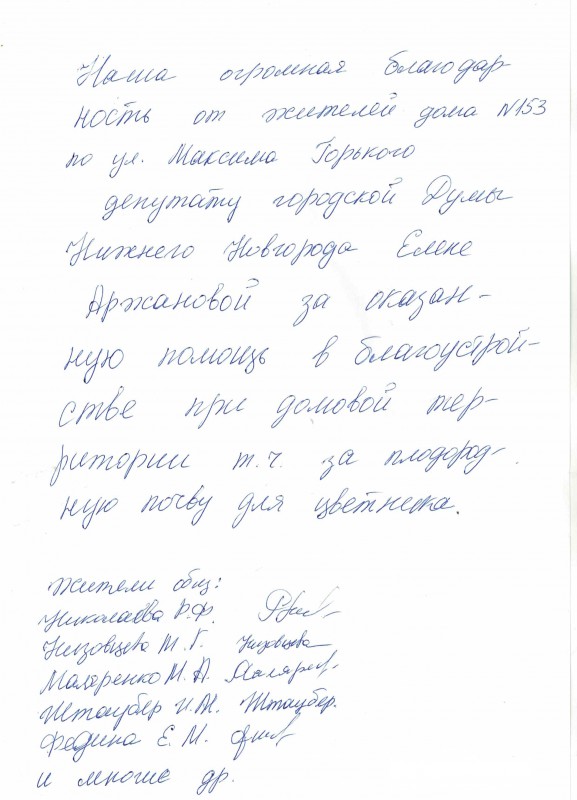 Наша огромная благодар-
ность от жителей дома N153
по ул. Максима Горького
депутату городской Думы
Нижнего Новгорода Елене
Аржановой за оказан-
ную помощь в благоустрой-
стве при домовой тер-
ритории т.ч. за плодород-
ную почву для цветника.
Жители общ:
Николаева Р.Ф.
Низовцева М. Г. Низовцева
Маляренко М. А. Маляренк
Штаубер И.М. Штаубер.
Федина Е. М.
и многие др.